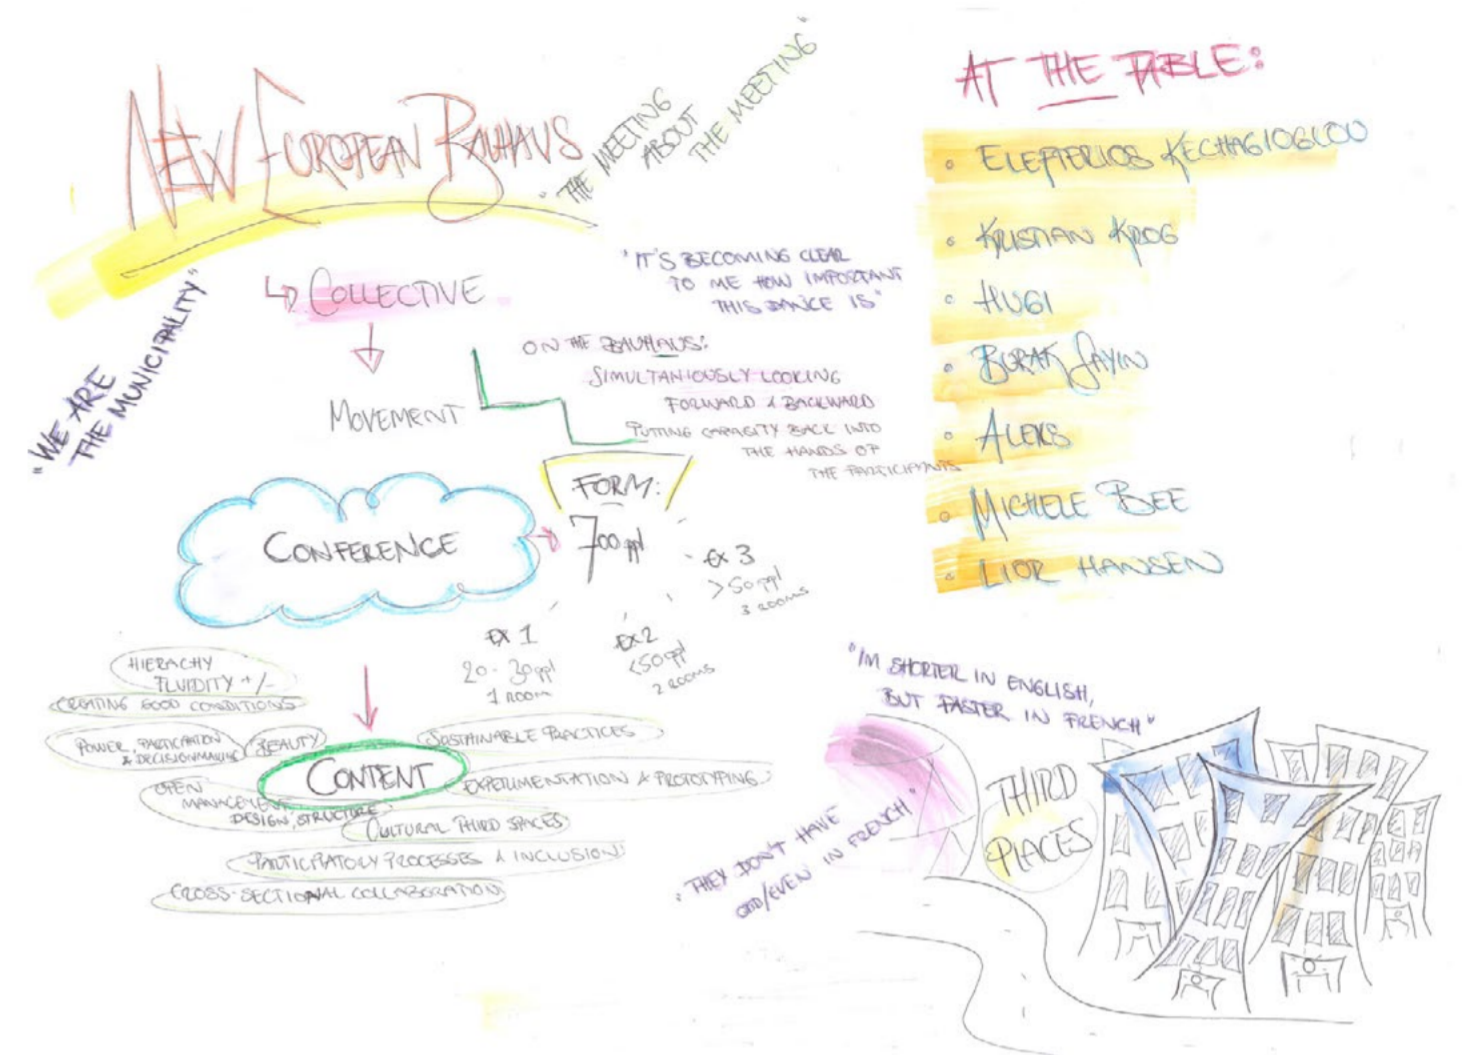 NEW EUROPEAN BAUHAUS
"THE MEETING
ABOUT
THE MEETING"
↳ COLLECTIVE
MOVEMENT
"WE ARE
THE MUNICIPALITY"
"IT'S BECOMING CLEAR
TO ME HOW IMPORTANT
THIS DANCE IS"
ON THE BAUHAUS:
SIMULTANIOUSLY LOOKING
FORWARD & BACKWARD
PUTTING CAPACITY BACK INTO
THE HANDS OF
THE PARTICIPANTS
CONFERENCE
FORM:
700 ppl
EX 1
20-30 ppl
1 ROOM
EX 2
<50 ppl
2 ROOMS
EX 3
>50 ppl
3 ROOMS
HIERACHY
FLUIDITY +/-
CREATING GOOD CONDITIONS
POWER, PARTICPATION
& DECISIONMAKING
BEAUTY
SUSTAINABLE PRACTICES
CONTENT
OPEN
MANAGEMENT,
DESIGN, STRUCTURE
EXPERIMENTATION & PROTOTYPING
CULTURAL THIRD SPACES
PARTICIPATORY PROCESSES & INCLUSION
CROSS-SECTIONAL COLLABORATION
AT THE TABLE:
• ELEFTERIOS KECHAGIOGLOU
• KRISTIAN KROG
• HUGI
• BURAK SAYIN
• ALEKS
• MICHELE BEE
• LIOR HANSEN
"I'M SHORTER IN ENGLISH,
BUT FASTER IN FRENCH"
"THEY DON'T HAVE
ODD/EVEN IN FRENCH"
THIRD
PLACES